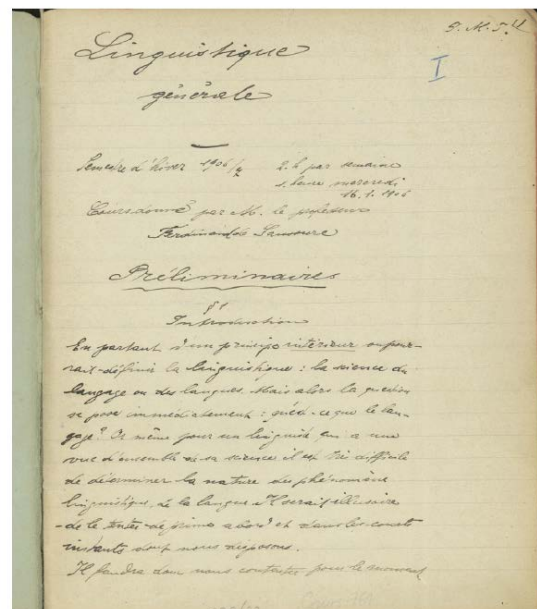 Linguistique
générale
I
Semestre d'hiver 1906/7
2 h par semaine
mercredi
16.1.1906
Cours donné par M. le professeur
Ferdinand de Saussure
Préliminaires
§ 1
Introduction
En partant d'un principe intérieur on pour-
rait définir la linguistique : la science du
langage ou des langues. Mais alors la question
se pose immédiatement : qu'est-ce que le lan-
gage? Or même pour un linguiste qui a une
vue d'ensemble de sa science il est très difficile
de déterminer la nature des phénomènes
linguistiques, de la langue. Il serait illusoire
de le tenter de prime abord et dans les courts
instants dont nous disposons.
Il faudra donc nous contenter pour le moment